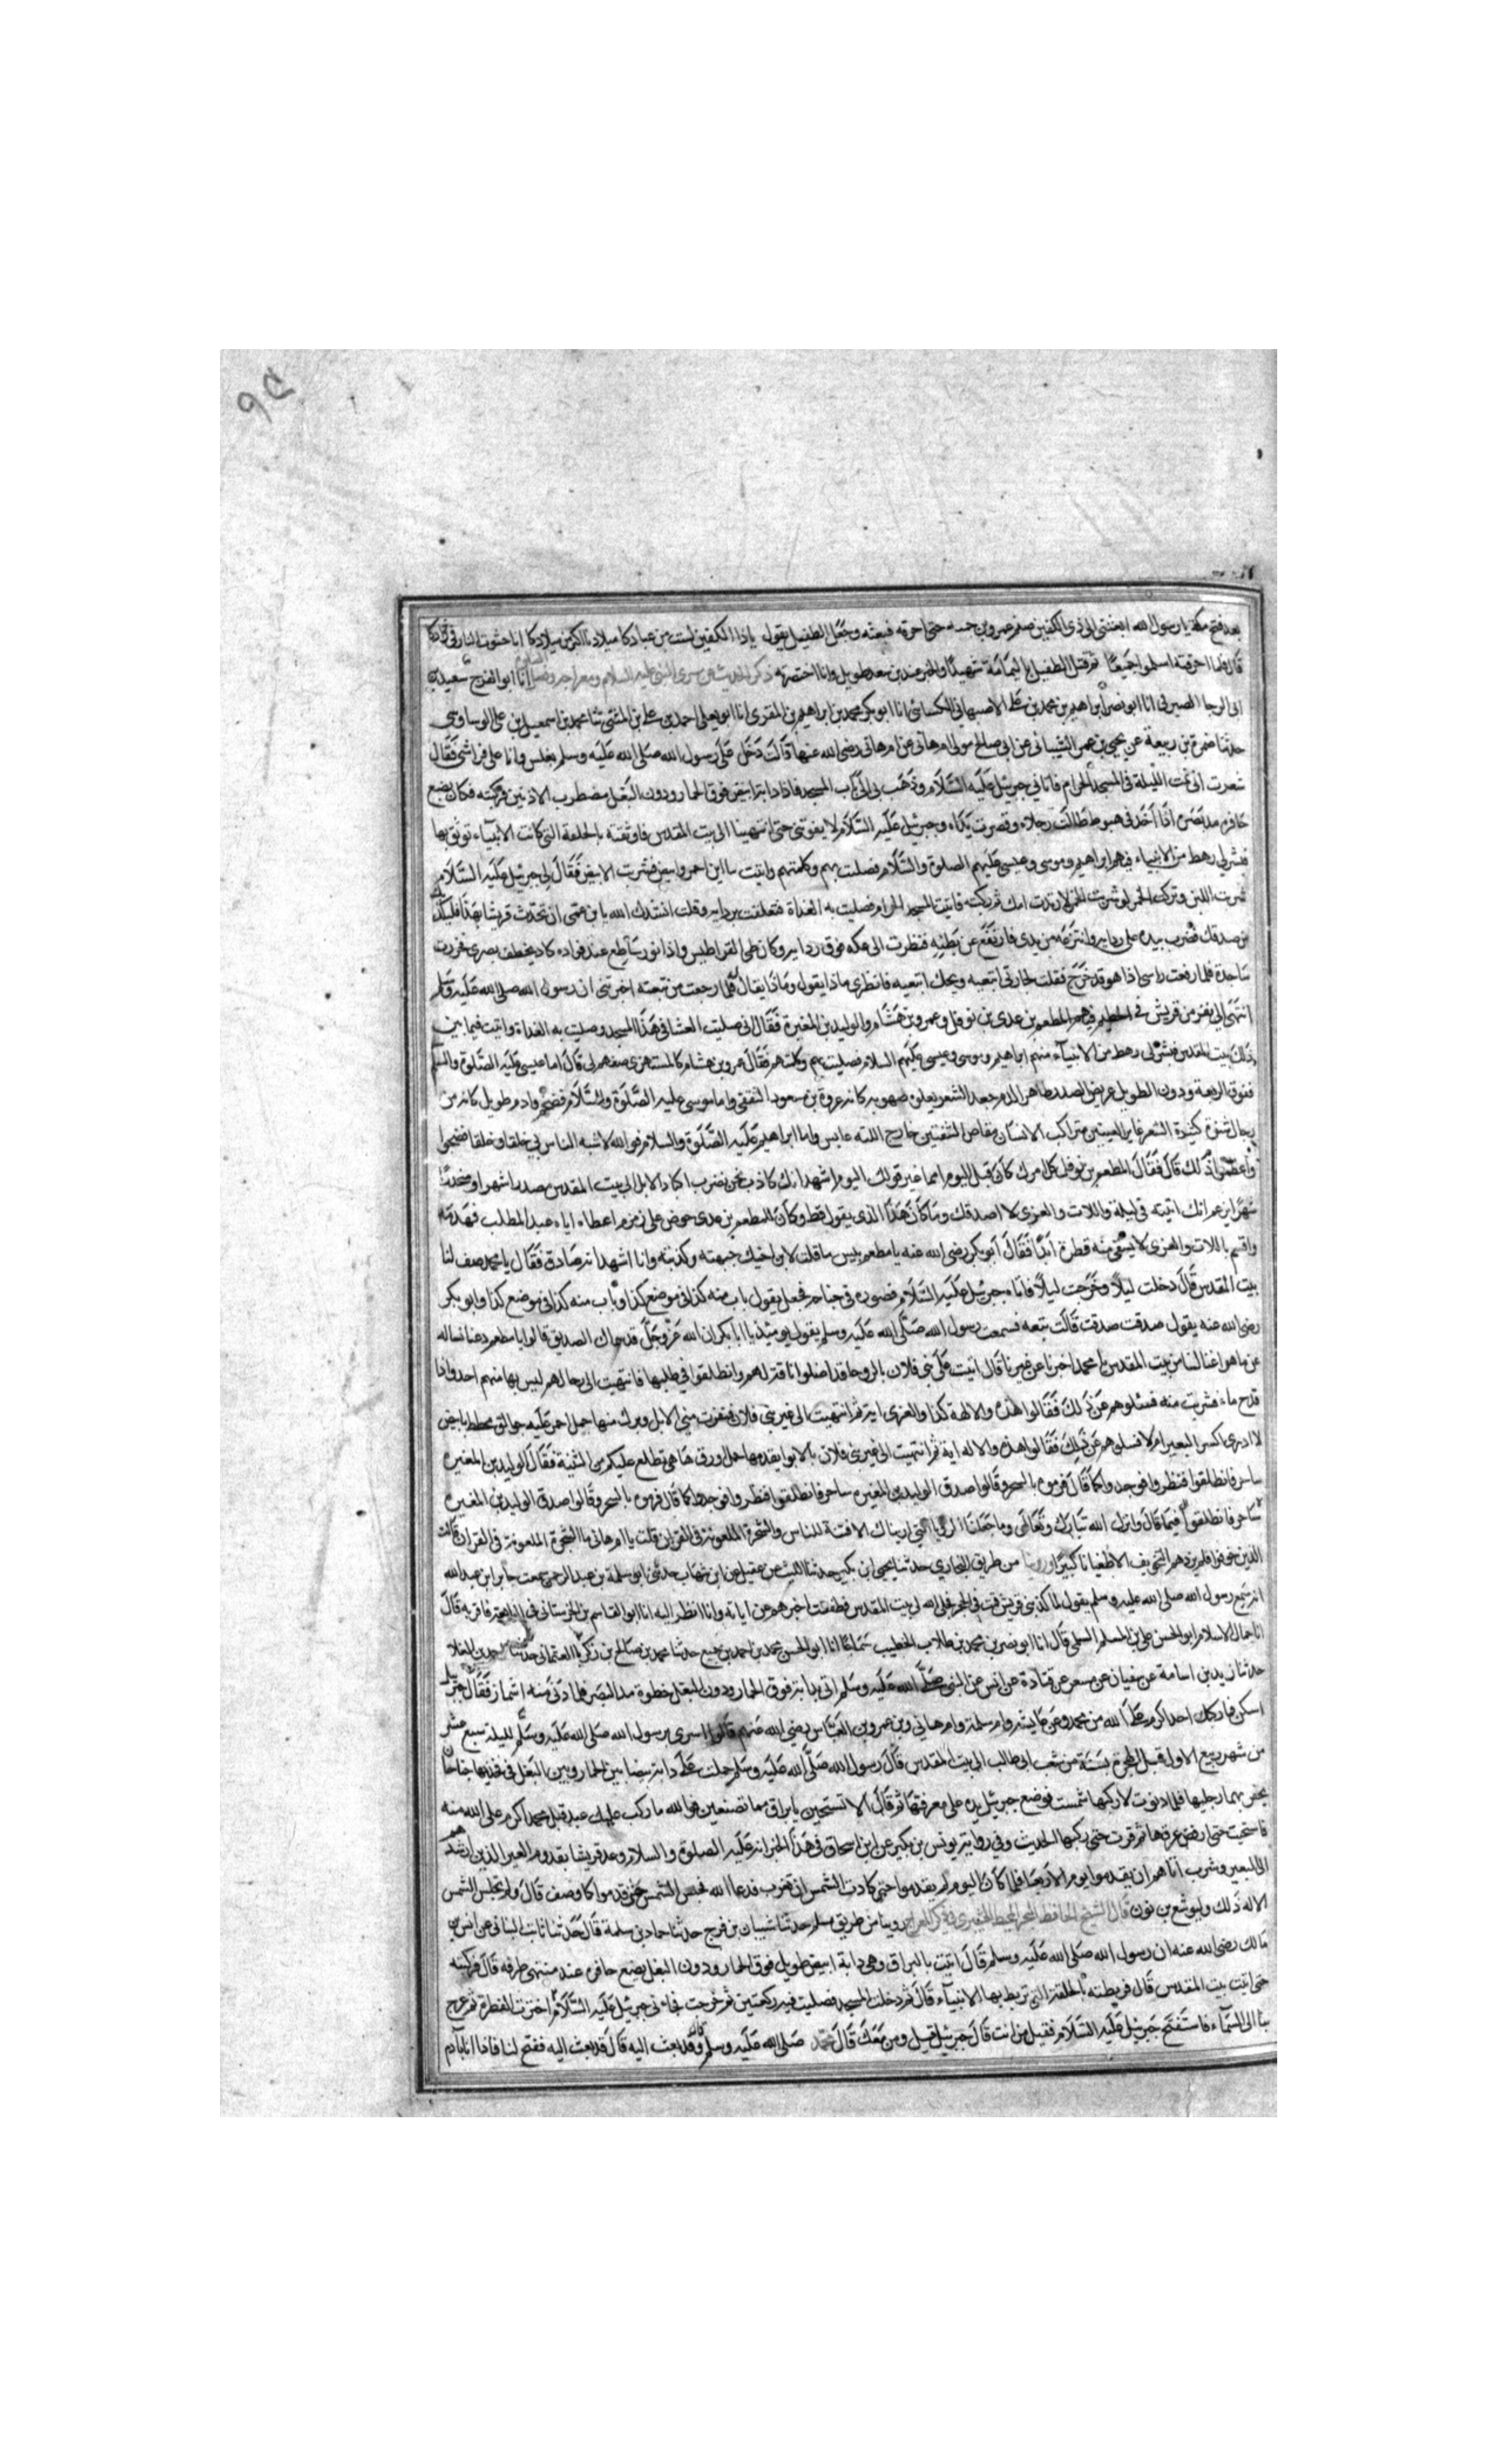 بعد فتح مكة يا رسول الله ابعثني الى ذي الكفين صنم عمرو بن حممه حتى احرقه فبعثه وجعل الطفيل يقول ياذا الكفين لست من عبادكا ميلادنا اكبر من ميلادكا انا حشوت النار في فوادكا
قال فلما احرقته اسلموا جميعا ثم قتل الطفيل باليمامة شهيدا والخبر عند بن سعد طويل وانا اختصرته ذكر الحديث عن مسرى النبي عليه السلام ومعراجه انا ابو الفرج سعيد بن
ابي الرجا الصيرفي انا ابو نصر ابراهيم بن محمد بن علي الاصبهاني الكسائي انا ابو بكر محمد بن ابراهيم بن المقرى انا ابو يعلى احمد بن علي بن المثنى ثنا محمد بن اسمعيل بن علي الوساوسي
حدثنا ضمرة بن ربيعة عن يحيى بن عمر الشيباني عن ابي صالح مولى ام هاني عن ام هاني رضي الله عنها قالت دخل علي رسول الله صلى الله عليه وسلم بغلس وانا على فراشي فقال
شعرت اني نمت الليلة في المسجد الحرام فاتاني جبرئيل عليه السلام وذهب بي الى باب المسجد فاذا دابة ابيض فوق الحمار ودون البغل مضطرب الاذنين فركبته فكان يضع
حافره مد بصره اذا اخذ في هبوط طالت رجلاه وقصرت يداه وجبرئيل عليه السلام لا يفوتني حتى انتهينا الى بيت المقدس فاوثقته بالحلقة التي كانت الانبياء توثق بها
فنشر لي رهط من الانبياء فيهم ابراهيم وموسى وعيسى عليهم الصلوة والسلام فصليت بهم وكلمتهم واتيت باناين احمر وابيض فشربت الابيض فقال لي جبرئيل عليه السلام
شربت اللبن وتركت الخمر لو شربت الخمر لارتدت امتك ثم ركبته فاتيت المسجد الحرام فصليت به الغداة فتعلقت بردايه وقلت انشدك الله يا بن عمي ان تحدث قريشا بهذا فيكذبك
من صدقك فضرب بيده على ردايه وانتزعه من يدي فارتفع عن بطنه فنظرت الى عكنه فوق ردايه وكانه طي القراطيس واذا نور ساطع عند فواده كاد يخطف بصري فخررت
ساجدة فلما رفعت راسي اذا هو قد خرج فقلت لجارتي نبعه ويحك اتبعيه فانظري ماذا يقول وماذا يقال له فلما رجعت من نبعة اخبرتني ان رسول الله صلى الله عليه وسلم
انتهى الى نفر من قريش في الحطيم فيهم المطعم بن عدي بن نوفل وعمرو بن هشام والوليد بن المغيرة فقال اني صليت العشا في هذا المسجد وصليت به الغداة واتيت فيما بين
ذلك بيت المقدس فنشر لي رهط من الانبياء منهم ابراهيم وموسى وعيسى عليهم السلام فصليت بهم وكلمتهم فقال عمرو بن هشام كالمستهزي صفهم لي قال اما عيسى عليه الصلوة والسلم
ففوق الربعة ودون الطويل عريض الصدر ظاهر الدم جعد الشعر يعلوه صهوبه كانه عروة بن مسعود الثقفي واما موسى عليه الصلوة والسلام فضخم ادم طويل كانه من
رجال شنوة كثيرة الشعر غاير العينين متراكب الاسنان مقلص الشفتين خارج اللثه عابس واما ابراهيم عليه الصلوة والسلام فوالله لاشبه الناس بي خلقا وخلقا فضجوا
واعظموا ذلك قال فقال المطعم بن نوفل كل امرك كان قبل اليوم امما غير قولك اليوم اشهد انك كاذب نحن نضرب اكباد الابل الى بيت المقدس مصعدا شهرا ومنحدرا
شهرا تزعم انك اتيته في ليلة واللات والعزى لا اصدقك وما كان هذا الذي يقول قط وكان للمطعم بن عدي حوض على زمزم اعطاه اياه عبد المطلب فهدمه
واقسم باللات والعزى لا يسقي منه قطرة ابدا فقال ابو بكر رضي الله عنه يا مطعم بيس ما قلت لابن اخيك جبهته وكذبته وانا اشهد انه صادق فقال يا محمد صف لنا
بيت المقدس قال دخلت ليلا وخرجت ليلا فاتاه جبرئيل عليه السلام فصوره في جناحه فجعل يقول باب منه كذا في موضع كذا وباب منه كذا في موضع كذا وابو بكر
رضي الله عنه يقول صدقت صدقت قالت نبعه فسمعت رسول الله صلى الله عليه وسلم يقول يومئذ يا ابا بكر ان الله عز وجل قد سماك الصديق قالوا يا مطعم دعنا نساله
عن ما هو اغنا لنا من بيت المقدس يا محمد اخبرنا عن عيرنا قال اتيت على بني فلان بالروحا قد اضلوا ناقة لهم وانطلقوا في طلبها فانتهيت الى رحالهم ليس بها منهم احد واذا
قدح ماء فشربت منه فسلوهم عن ذلك فقالوا هذه والالهة كذا والعزى اية ثم انتهيت الى عير بني فلان فنفرت مني الابل وبرك منها جمل احمر عليه جوالق مخطط ببياض
لا ادري اكسر البعير ام لا فسلوهم عن ذلك فقالوا هذه والاله اية ثم انتهيت الى عير بني فلان بالابوا يقدمها جمل اورق ها هي تطلع عليكم من الثنية فقال الوليد بن المغيره
ساحر فانطلقوا فنظروا فوجدوا كما قال فرموه بالسحر وقالوا صدق الوليد بن المغيره ساحر فانطلقوا فنظروا فوجدوها كما قال فرموه بالسحر وقالوا صدق الوليد بن المغيره
فيما قال وانزل الله تبارك وتعالى وما جعلنا الرويا التي اريناك الا فتنة للناس والشجرة الملعونة في القران قلت يا ام هاني ما الشجرة الملعونة في القران قالت
الذين خوفوا فلم يزدهم التخويف الا طغيانا كبيرا وروينا من طريق البخاري حدثنا يحيى ابن بكير حدثنا الليث عن عقيل عن ابن شهاب حدثني ابو سلمة بن عبد الرحمن سمعت جابر ابن عبد الله
انه سمع رسول الله صلى الله عليه وسلم يقول لما كذبني قريش قمت في الحجر فجلى الله لي بيت المقدس فطفقت اخبرهم عن اياته وانا انظر اليه انا ابو القاسم بن الحرستاني
انا جمال الاسلام ابو الحسن علي بن المسلم السلمي قال انا ابو نصر بن محمد بن طلاب الخطيب سماعا انا ابو الحسن محمد بن احمد بن جميع حدثنا محمد بن صالح بن زكريا العثماني حدثنا
حدثنا زيد بن اسامة عن سفيان عن مسعر عن قتادة عن انس عن النبي صلى الله عليه وسلم اتي بدابة فوق الحمار ودون البغل خطوه مد البصر فلما دنى منه اشماز فقال جبريل
اسكن فما ركبك احد اكرم على الله من محمد وعن عايشة وام سلمة وام هاني وبن عمرو بن العباس رضي الله عنهم قالوا اسري برسول الله صلى الله عليه وسلم ليلة سبع عشر
من شهر ربيع الاول قبل الهجرة بسنة من شعب ابي طالب الى بيت المقدس قال رسول الله صلى الله عليه وسلم حملت على دابة بيضا بين الحمار وبين البغل في فخذيها جناحان
يحفز بهما رجليها فلما دنوت لاركبها شمست فوضع جبرئيل يده على معرفتها ثم قال الا تستحين يا براق مما تصنعين فوالله ما ركب عليك عبد قبل محمد اكرم على الله منه
فاستحيت حتى ارفض عرقها ثم قرت حتى ركبها الحديث وفي رواية يونس بن بكير عن ابن اسحاق في هذا الخبر انه عليه الصلوة والسلام وعد قريشا بقدوم العير الذين ارشدهم
الى البعير وشرب اناهم ان يقدموا يوم الاربعا فلما كان اليوم لم يقدموا حتى كادت الشمس ان تغرب فدعا الله فحبس الشمس حتى قدموا كما وصف قال ولم تحبس الشمس
الا له ذلك وليوشع بن نون قال الشيخ الحافظ روينا من طريق مسلم حدثنا شيبان بن فرج حدثنا حماد بن سلمة قال حدثنا ثابت البناني عن انس بن
مالك رضي الله عنه ان رسول الله صلى الله عليه وسلم قال اتيت بالبراق وهي دابة ابيض طويل فوق الحمار ودون البغل يضع حافره عند منتهى طرفه قال فركبته
حتى اتيت بيت المقدس قال فربطته بالحلقة التي تربط بها الانبياء قال ثم دخلت المسجد فصليت فيه ركعتين ثم خرجت فجاءني جبرئيل عليه السلام اخترت الفطرة ثم عرج
بنا الى السماء فاستفتح جبرئيل عليه السلام فقيل من انت قال جبرئيل قيل ومن معك قال محمد صلى الله عليه وسلم وقد بعث اليه قال قد بعث اليه ففتح لنا فاذا انا بآدم